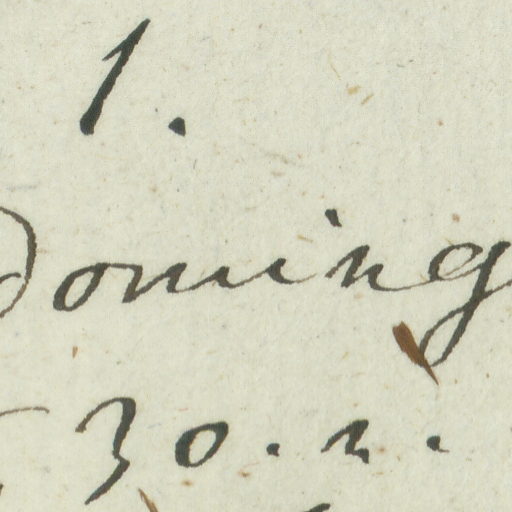 1.
doming
30. n.